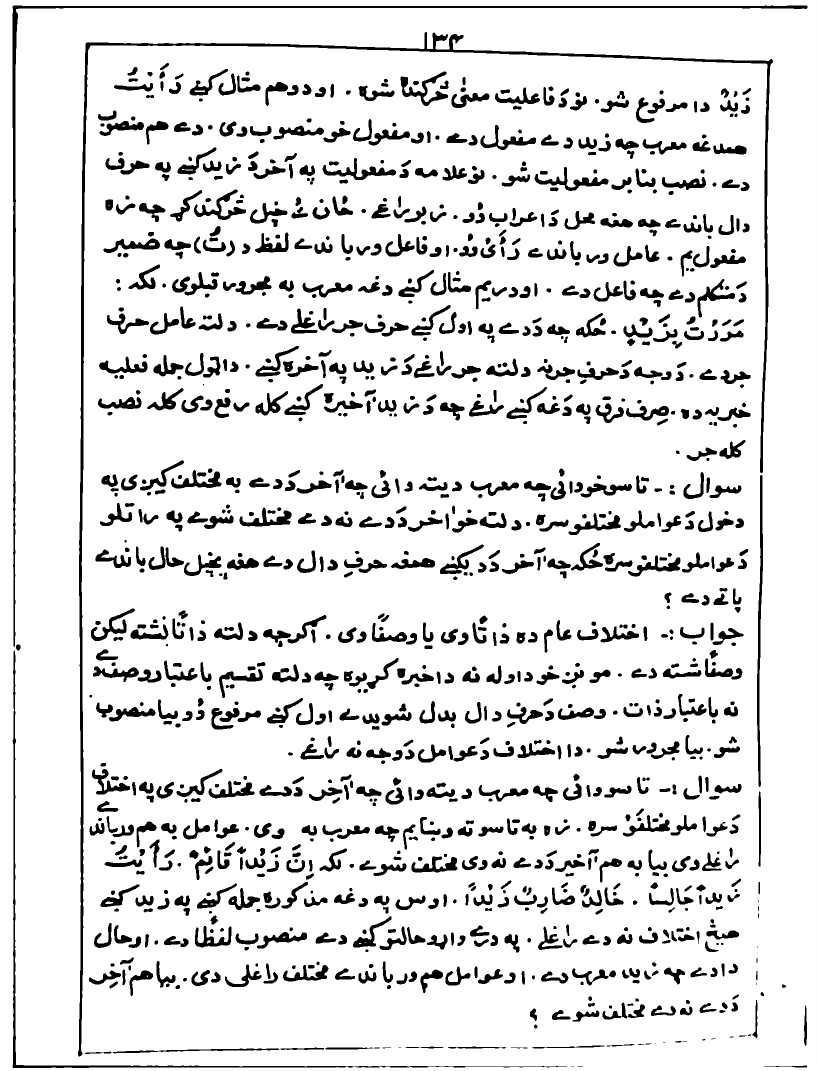 ۱۳۴
زَیْدٌ دا مرفوع شو. نو دَ فاعلیت معنیٰ څرګنده شوه. او دوهم مثال کښے رَأَیْتُ
همدغه معرب چه زید دے مفعول دے. او مفعول خو منصوب وی. دے هم منصوب
دے. نصب بنا بر مفعولیت شو. نو علامه دَ مفعولیت په آخر دَ زید کښے په حرف
دال باندے چه هغه محل دَ اعراب دُو. زبر راغے. ځان ئے خپل څرګند کړ چه زه
مفعول یم. عامل ور باندے رَأَیٰ دُو. او فاعل ور باندے لفظ د (تُ) چه ضمیر
دَ متکلم دے چه فاعل دے. او دریم مثال کښے دغه معرب به مجرور قبلوی. لکه:
مَرَرْتُ بِزَیْدٍ. ځکه چه دَدے په اول کښے حرف جر راغلے دے. دلته عامل حرف
جر دے. دَ وجه دَ حرفِ جر نه دلته جر راغے دَ زید په آخره کښے. دا ټول جمله فعلیه
خبریه ده. صِرف فرق په دَغه کښے راغے چه دَ زید آخیره کښے کله رفع وی کله نصب
کله جر.
سوال :- تاسو خو وائی چه معرب دیته وائی چه آخر دَدے به مختلف کیږی په
دخول دَ عواملو مختلفو سره. دلته خو آخر دَدے نه دے مختلف شوے په راتلو
دَ عواملو مختلفو سره ځکه چه آخر دَدیکښے همغه حرفِ دال دے هغه پخپل حال باندے
پاتے دے ؟
جواب :- اختلاف عام ده ذاتًا وی یا وصفًا وی. اگرچه دلته ذاتًا نشته لیکن
وصفًا شته دے. مونږ خو داوله نه دا خبره کړیوه چه دلته تقسیم باعتبار وصف دے
نه باعتبار ذات. وصف دَ حرفِ دال بدل شویدے اول کښے مرفوع دُو بیا منصوب
شو. بیا مجرور شو. دا اختلاف دَ عوامل دَ وجه نه راغے.
سوال :- تاسو وائی چه معرب دیته وائی چه آخِر دَدے مختلف کیږی په اختلاف
دَ عواملو مختلفَوْ سره. زه به تاسو ته وښایم چه معرب به وی. عوامل به هم ورباندے
راغلے وی بیا به هم آخیر دَدے نه وی مختلف شوے. لکه اِنَّ زَیْداً قَائِمٌ. رَأَیْتُ
زَیداً جَالِسًا. خَالِدٌ ضَارِبٌ زَیْداً. اوس په دغه مذکوره جمله کښے په زید کښے
هیڅ اختلاف نه دے راغلے. په درے واړو حالتو کښے دے منصوب لفظًا دے. او حال
دادے چه زید معرب دے. او عوامل هم ور باندے مختلف راغلی دی. بیا هم آخِر
دَدے نه دے مختلف شوے ؟